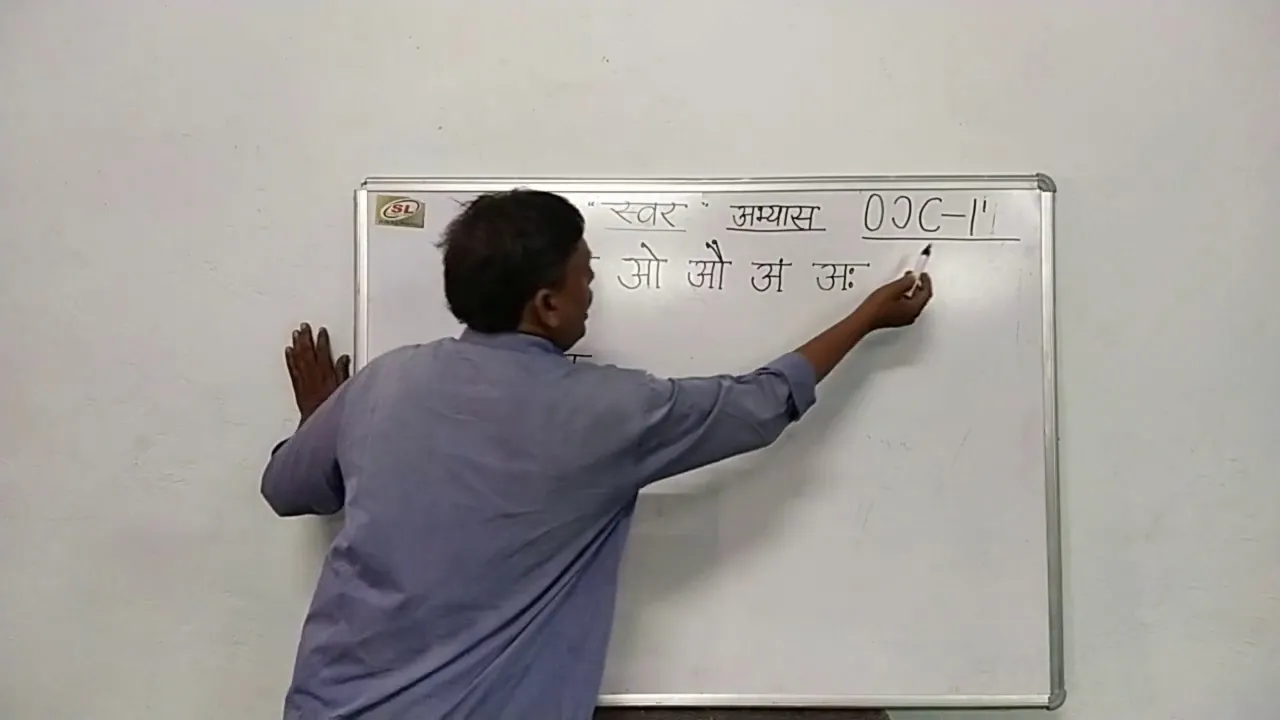 SL
"स्वर" अभ्यास OJC-1'1
ओ औ अं अः